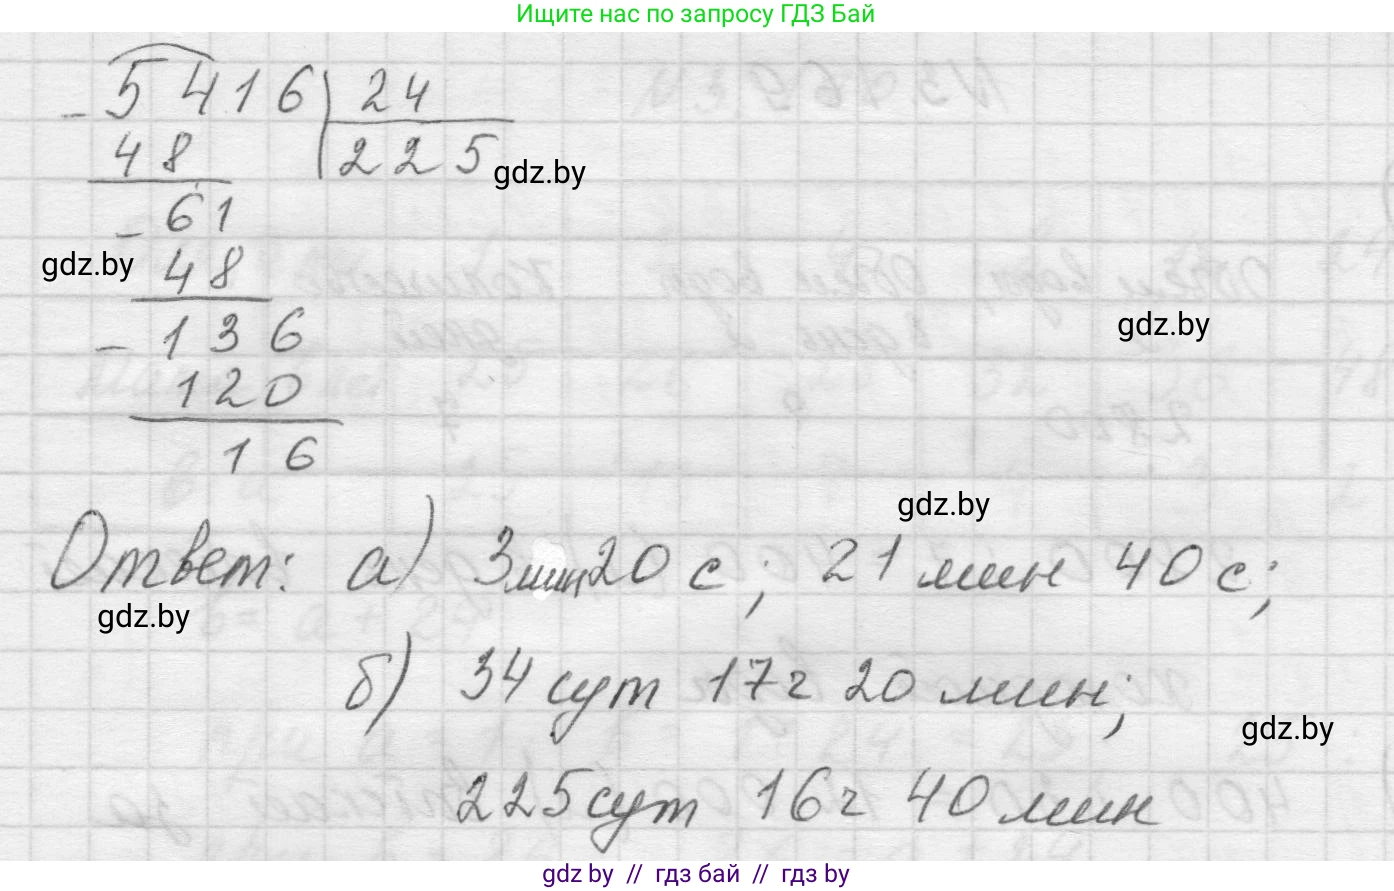 Ищите нас по запросу ГДЗ Бай
5416 24
48 225
gdz.by
61
gdz.by
48
136
gdz.by
120
16
gdz.by
Ответ: а) 3мин20 с; 21 мин 40 с;
gdz.by
б) 34 сут 17 г 20 мин;
gdz.by
225 сут 16 г 40 мин
gdz.by // гдз бай // гдз by